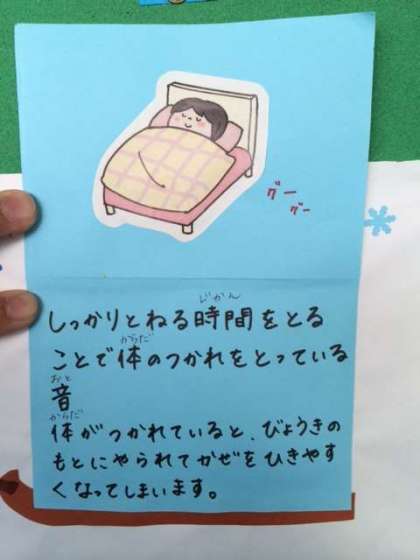 グー
グー
じかん
しっかりとねる時間をとる
からだ
ことで体のつかれをとっている
おと
音
からだ
体がつかれていると、びょうきの
もとにやられてかぜをひきやす
くなってしまいます。